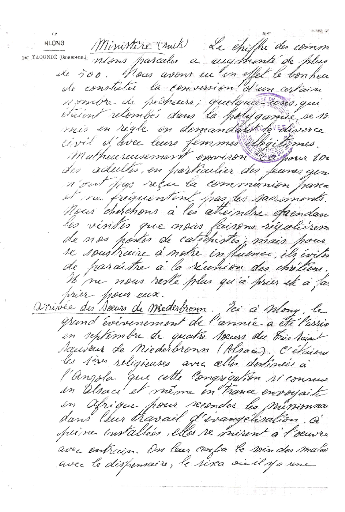 MLONG
par YAOUNDÉ (Cameroun)
Ministère (suite) Le chiffre des commu
nions pascales a augmenté de plus
de 200. Nous avons eu en effet le bonheur
de constater la conversion d'un certain
nombre de pécheurs; quelques-uns, qui
étaient retombés dans la polygamie, se st
mis en règle en demandant le divorce
civil d'avec leurs femmes illégitimes.
Malheureusement environ
des adultes, en particulier des jeunes gens
n'ont pas refait la communion pascale
et ne fréquentent pas les sacrements.
Nous cherchons à les atteindre pendant
les visites que nous faisons régulièrement
de nos postes de catéchistes; mais pour
se soustraire à notre influence, ils évitent
de paraître à la réunion des chrétiens.
Il ne nous reste plus qu'à prier et à faire
prier pour eux.
Arrivée des Soeurs de Niederbronn. Ici à Mlong, le
grand événement de l'année a été l'arrivée
en septembre de quatre Soeurs du Très Saint
Sauveur de Niederbronn (Alsace). C'étaient
les 1ères religieuses avec celles destinées à
l'Angola que cette Congrégation si connue
en Alsace et même en France envoyait
en Afrique pour seconder les missionnaires
dans leur travail d'évangélisation. A
peine installées, elles se mirent à l'oeuvre
avec entrain. On leur confia le soin des malades
avec le dispensaire, le sixa où il y a une